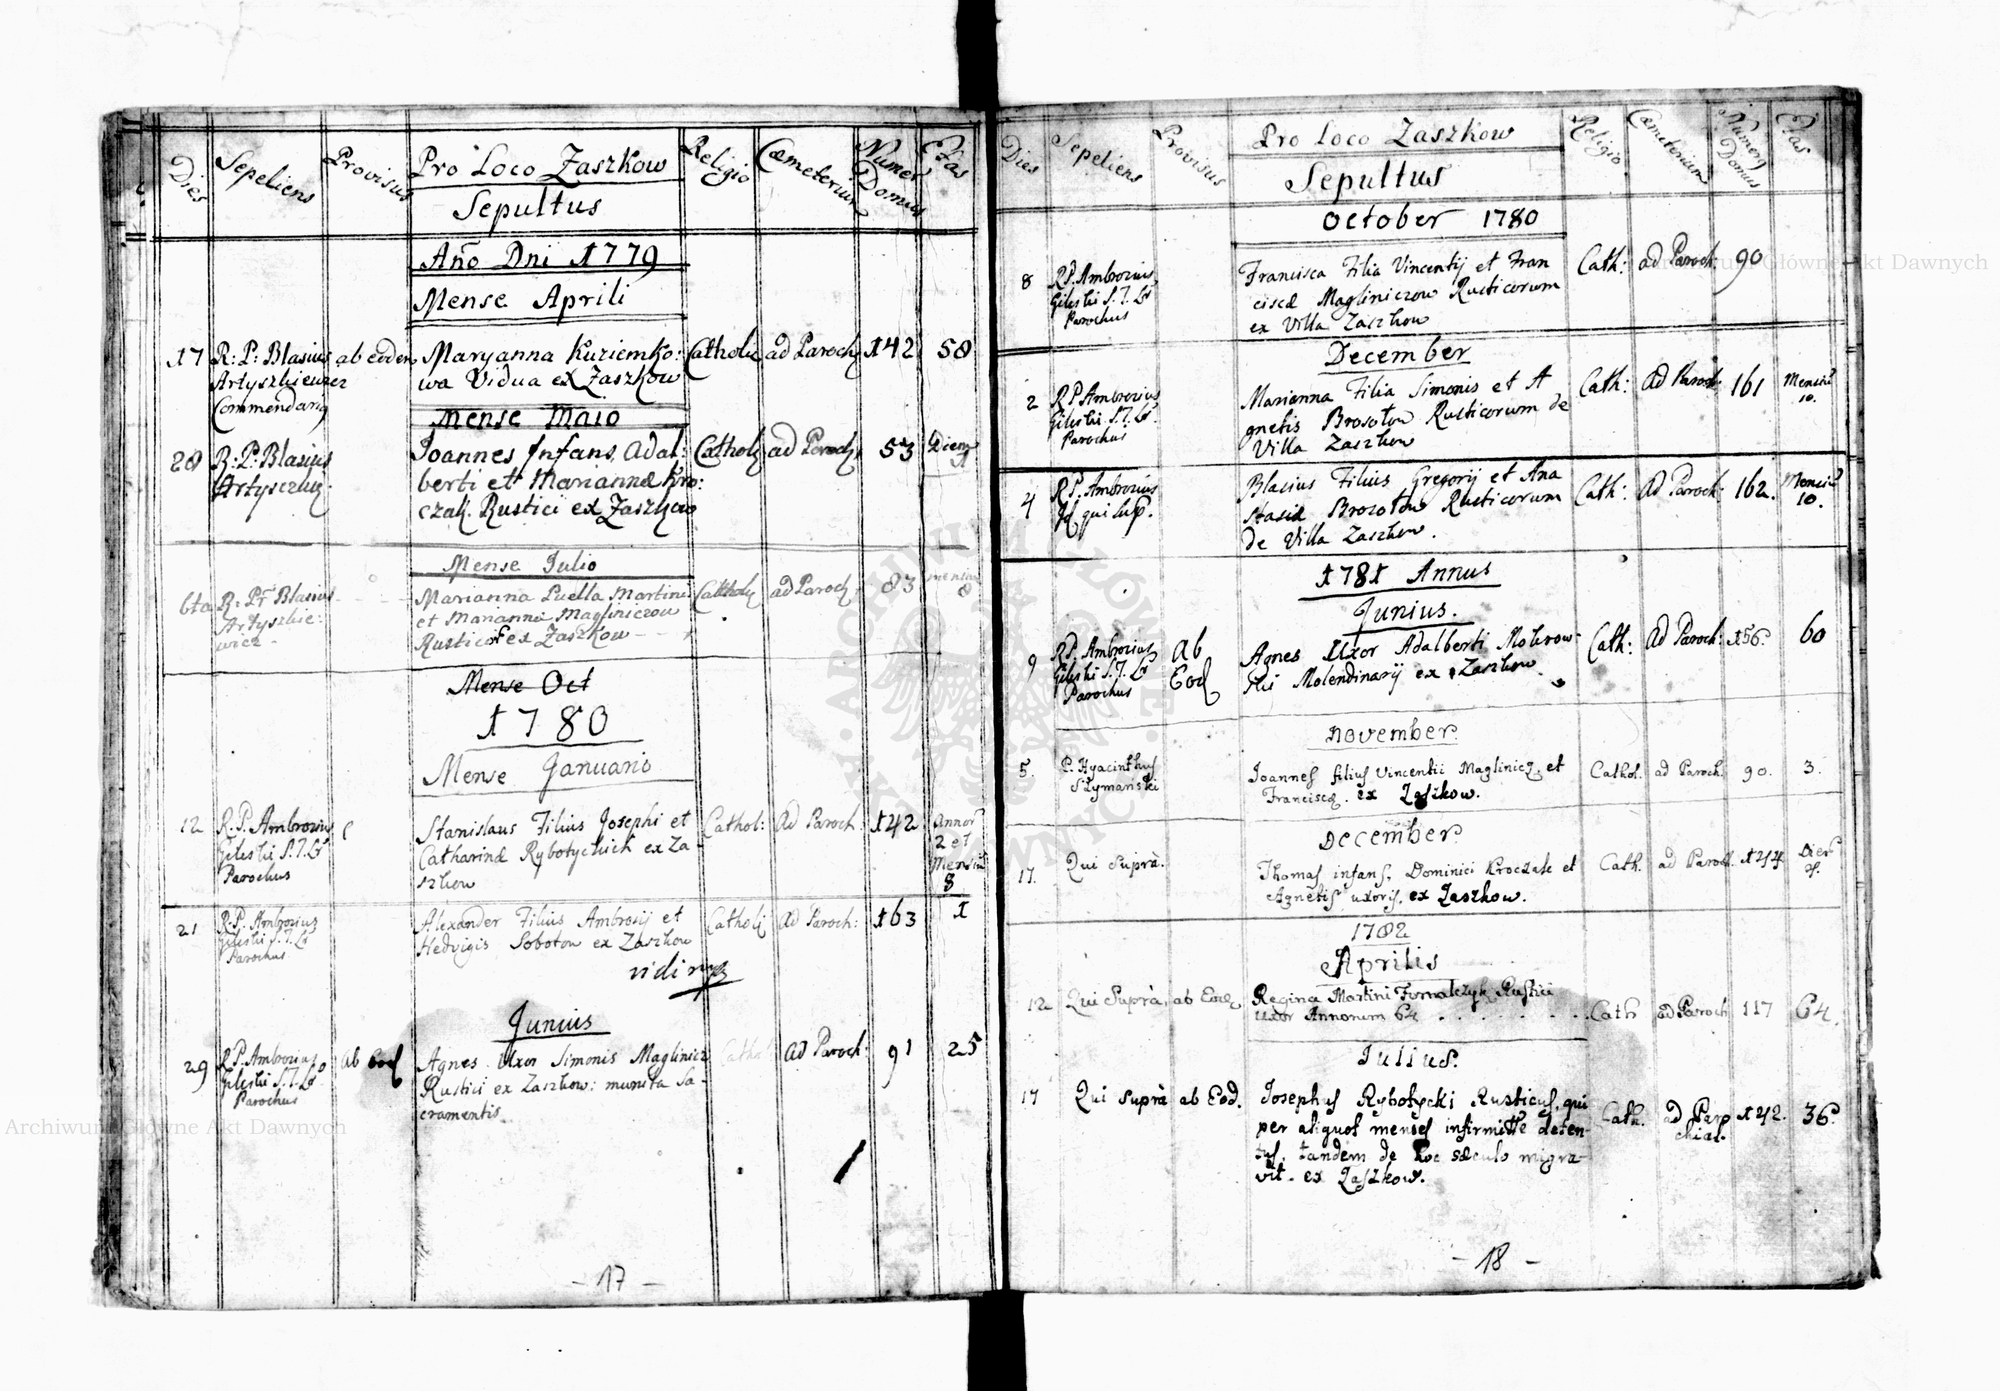 Dies Sepeliens Provisus Pro Loco Zaszkow Religio Cæmeterium Numer Domus Ætas
Sepultus
Año Dni 1779
Mense Aprili
17 R: P: Blasius ab eodem Maryanna Kuziemko: Catholic ad Paroch 142 58
Artyszkiewicz wa Vidua ex Zaszkow
Commendariq
Mense Maio
28 R: P: Blasius Joannes Infans Adal: Catholq ad Paroch 53
berti et Mariannæ Kro:
czak. Rustici ex Zaszkow
Mense Julio
6ta R: Pr Blasius Marianna Puella Martini Catholq ad Paroch 83 mensiu
Artyszkie: et Mariannæ Magliniczow 8
wicz - Rusticor ex Zaszkow
Mense Oct
1780
Mense Januario
12 R. P. Ambrosius Stanislaus Filius Josephi et Cathol: ad Paroch 142 Annor
Gileski S. T. Lr Catharinæ Rybotychich ex Za 2 et
Parochus szkow Mensiu
8
21 R P. Ambrosius Alexander Filius Ambrosij et Catholq ad Paroch: 163 1
Gileski S. T. Lr Hedvigis Sobotow ex Zaszkow
Parochus
vidi
Junius
29 R P. Ambrosius ab Eod Agnes Uxor Simonis Maglinicz Cathol ad Paroch: 91 25
Gileski S. T. Lr Rustici ex Zaszkow: munita Sa-
Parochus cramentis
- 17 -
Dies Sepeliens Provisus Pro Loco Zaszkow Religio Cæmeterium Numerq Domus Ætas
Sepultus
October 1780
8 R P. Ambrosius Francisca Filia Vincentij et Fran Cath: ad Paroch: 90
Gileski S. T. Lr ciscæ Magliniczow Rusticorum
Parochus ex Villa Zaszkow
December
2 R P Ambrosius Marianna Filia Simonis et A Cath: ad Paroch: 161 Mensiu
Gileski S. T. Lr. gnetis Brosotow Rusticorum de 10.
Parochus Villa Zaszkow
4 R P. Ambrosius Blasius Filius Gregorij et Ana Cath: ad Paroch: 162. Mensiu
Id qui sup. stasiæ Brosotow Rusticorum 10.
de Villa Zaszkow.
1781 Annus
Junius.
9 R P. Ambrosius Ab Agnes Uxor Adalberti Mokrow Cath: ad Paroch: 156. 60
Gileski S. T. Lr Eod ski Molendinarij ex Zaszkow
Parochus
November
5. P. Hyacinthus Joannes filius Vincentii Maglinicz et Cathol. ad Paroch. 90. 3.
Szymański Franciscæ. ex Zaszkow.
December
17. Qui Suprà. Thomas infans, Dominici Kroczak et Cath. ad Paroch.
Agnetis uxoris, ex Zaszkow.
1782
Aprilis
12. Qui Suprà, ab Eod. Regina Martini Fornalczyk Rustici Cath ad Paroch 117 64.
uxor Annorum 64
Julius.
17 Qui Suprà ab Eod. Josephus Rybotycki Rusticus, qui Cath. ad Paro 142. 36.
per aliquot menses infirmitte deten- chial.
tus, tandem de hoc sæculo migra-
vit. ex Zaszkow.
- 18 -
Archiwum Główne Akt Dawnych
Archiwum Główne Akt Dawnych